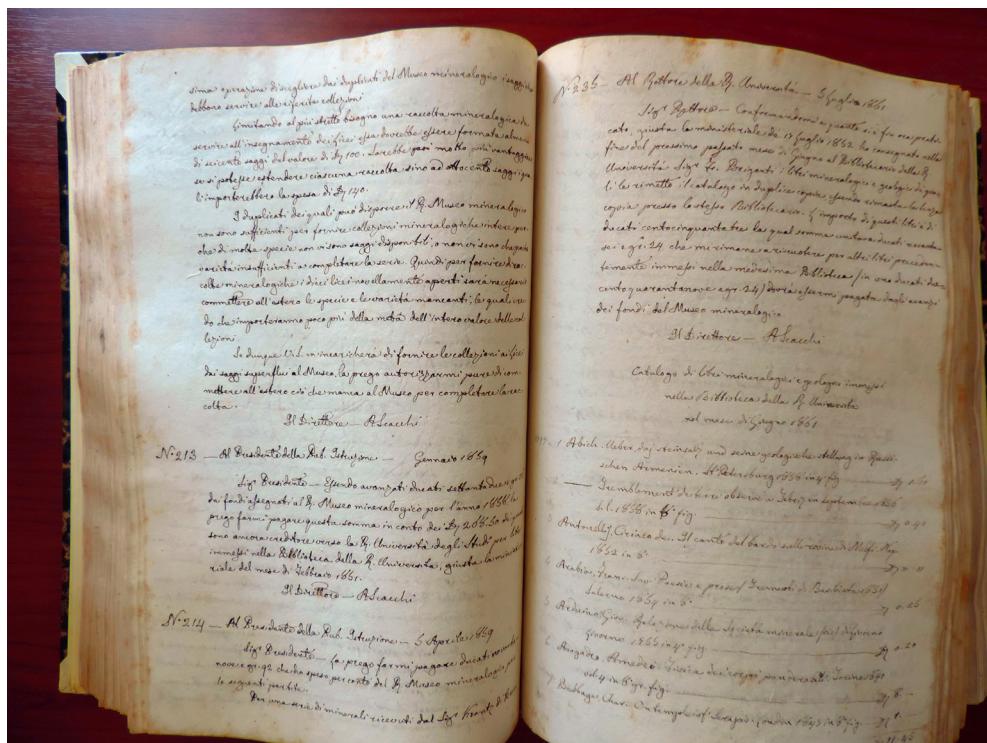 sima operazione di scegliere dai duplicati del Museo mineralogico i saggi che
debbono servire alle riferite collezioni
Limitando al più stretto bisogno una raccolta mineralogica da
servire all'insegnamento dei licei essa dovrebbe essere formata almeno
di seicento saggi del valore di D. 100. Sarebbe però molto più vantaggioso
se si potesse estendere ciascuna raccolta sino ad ottocento saggi, i quali
l'importerebbero la spesa di D. 140.
I duplicati dei quali può disporre il R. Museo mineralogico
non sono sufficienti per fornire collezioni mineralogiche intere per-
chè di molte specie non vi sono saggi disponibili, o non vi sono che poche
varietà insufficienti a completare la serie. Quindi per fornire di rac-
colte mineralogiche i dieci licei novellamente aperti sarà necessario
commettere all'estero le specie e le varietà mancanti, le quali cre-
do che importeranno poco più della metà dell'intero valore delle col-
lezioni.
Se dunque V.S. m'incaricherà di fornire le collezioni ai licei
dai saggi superflui al Museo, la prego autorizzarmi pure di com-
mettere all'estero ciò che manca al Museo per completare la rac-
colta.
Il Direttore — A. Scacchi
N.° 213 — Al Presidente della Pub. Istruzione — Gennaio 1859
Sig.r Presidente — Essendo avanzati ducati settantadue e gr.
dai fondi assegnati al R. Museo mineralogico per l'anno 1858, la
prego farmi pagare questa somma in conto dei D. di cui
sono ancora creditore verso la R. Università degli Studi per libri
immessi nella Biblioteca della R. Università, giusta la ministe-
riale del mese di Febbraio 1851.
Il Direttore — A. Scacchi
N.° 214 — Al Presidente della Pub. Istruzione — 5 Aprile 1859
Sig.r Presidente — La prego farmi pagare ducati novanta-
nove e gr. 92 che ho speso per conto del R. Museo mineralogico per
le seguenti partite.
Per una serie di minerali ricevuti dal Sig.r Krantz di Bonn
N.° 235 — Al Rettore della R. Università — 5 Luglio 1861
Sig.r Rettore — Conformandomi a quanto si è fra ora prati-
cato, giusta la ministeriale de' 17 Luglio 1852 ho consegnato nella
fine del prossimo passato mese di Giugno al Bibliotecario della R.
Università Sig.r i libri mineralogici e geologici dei qua-
li le rimetto il catalogo in duplice copia essendo rimasta la terza
copia presso lo stesso Bibliotecario. L'importo di questi libri è di
ducati centocinquantatre la qual somma unita a ducati novanta-
sei e gr. 24 che mi rimane a riscuotere per altri libri preceden-
temente immessi nella medesima Biblioteca (in uno ducati due-
centoquarantanove e gr. 24) dovrà essermi pagata dagli avanzi
dei fondi del Museo mineralogico.
Il Direttore — A. Scacchi
Catalogo di libri mineralogici e geologici immessi
nella Biblioteca della R. Università
nel mese di Giugno 1861
1 Abich. Ueber das steinsalz und seine geologische stellung in Russi-
schen Armenien. St. Petersburg 1856 in 4° fig.
— Tremblement de terre observé à Tebriz in septembre 1856
s.l. 1858 in 8° fig. D. 0.40
3 Antonelli, Crinea de. Il canto del bardo sulle rovine di Melfi. Nap.
1852 in 8°
4 Arabia, Franc. Sav. Poesie e prose
Salerno 1854 in 8° D. 0.25
5 Arduino, Giov. Relazione della Società minerale
1855 in 4° fig. D. 0.20
6 Avogadro, Amedeo. Fisica dei corpi ponderabili. Torino
vol. 4 in 8° fig. D. 8.
7 Babbage, Char. On temple of Serapis. London in 8° fig.